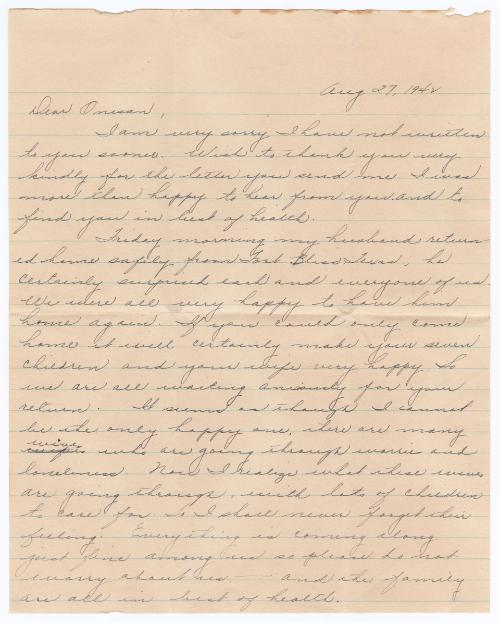 Aug 27, 1942
Dear Onesan,
I am very sorry I have not written
to you sooner. Wish to thank you very
kindly for the letter you send me. I was
more than happy to hear from you, and to
find you in best of health.
Friday morning my husband return
ed home safely from Fort Bliss Texas, he
certainly surprised each and everyone of us.
We were all very happy to have him
home again. If you could only come
home it will certainly make your seven
children and your wife very happy. So
we are all waiting anxiously for your
return. It seems as though I cannot
be the only happy one, there are many
wives
who are going through worrie and
loneliness. Now I realize what these wives
are going through, with lots of children
to care for. So I shall never forget their
feeling. Everything is coming along
just fine among us so please do not
worry about us, — and the family
are all in best of health.